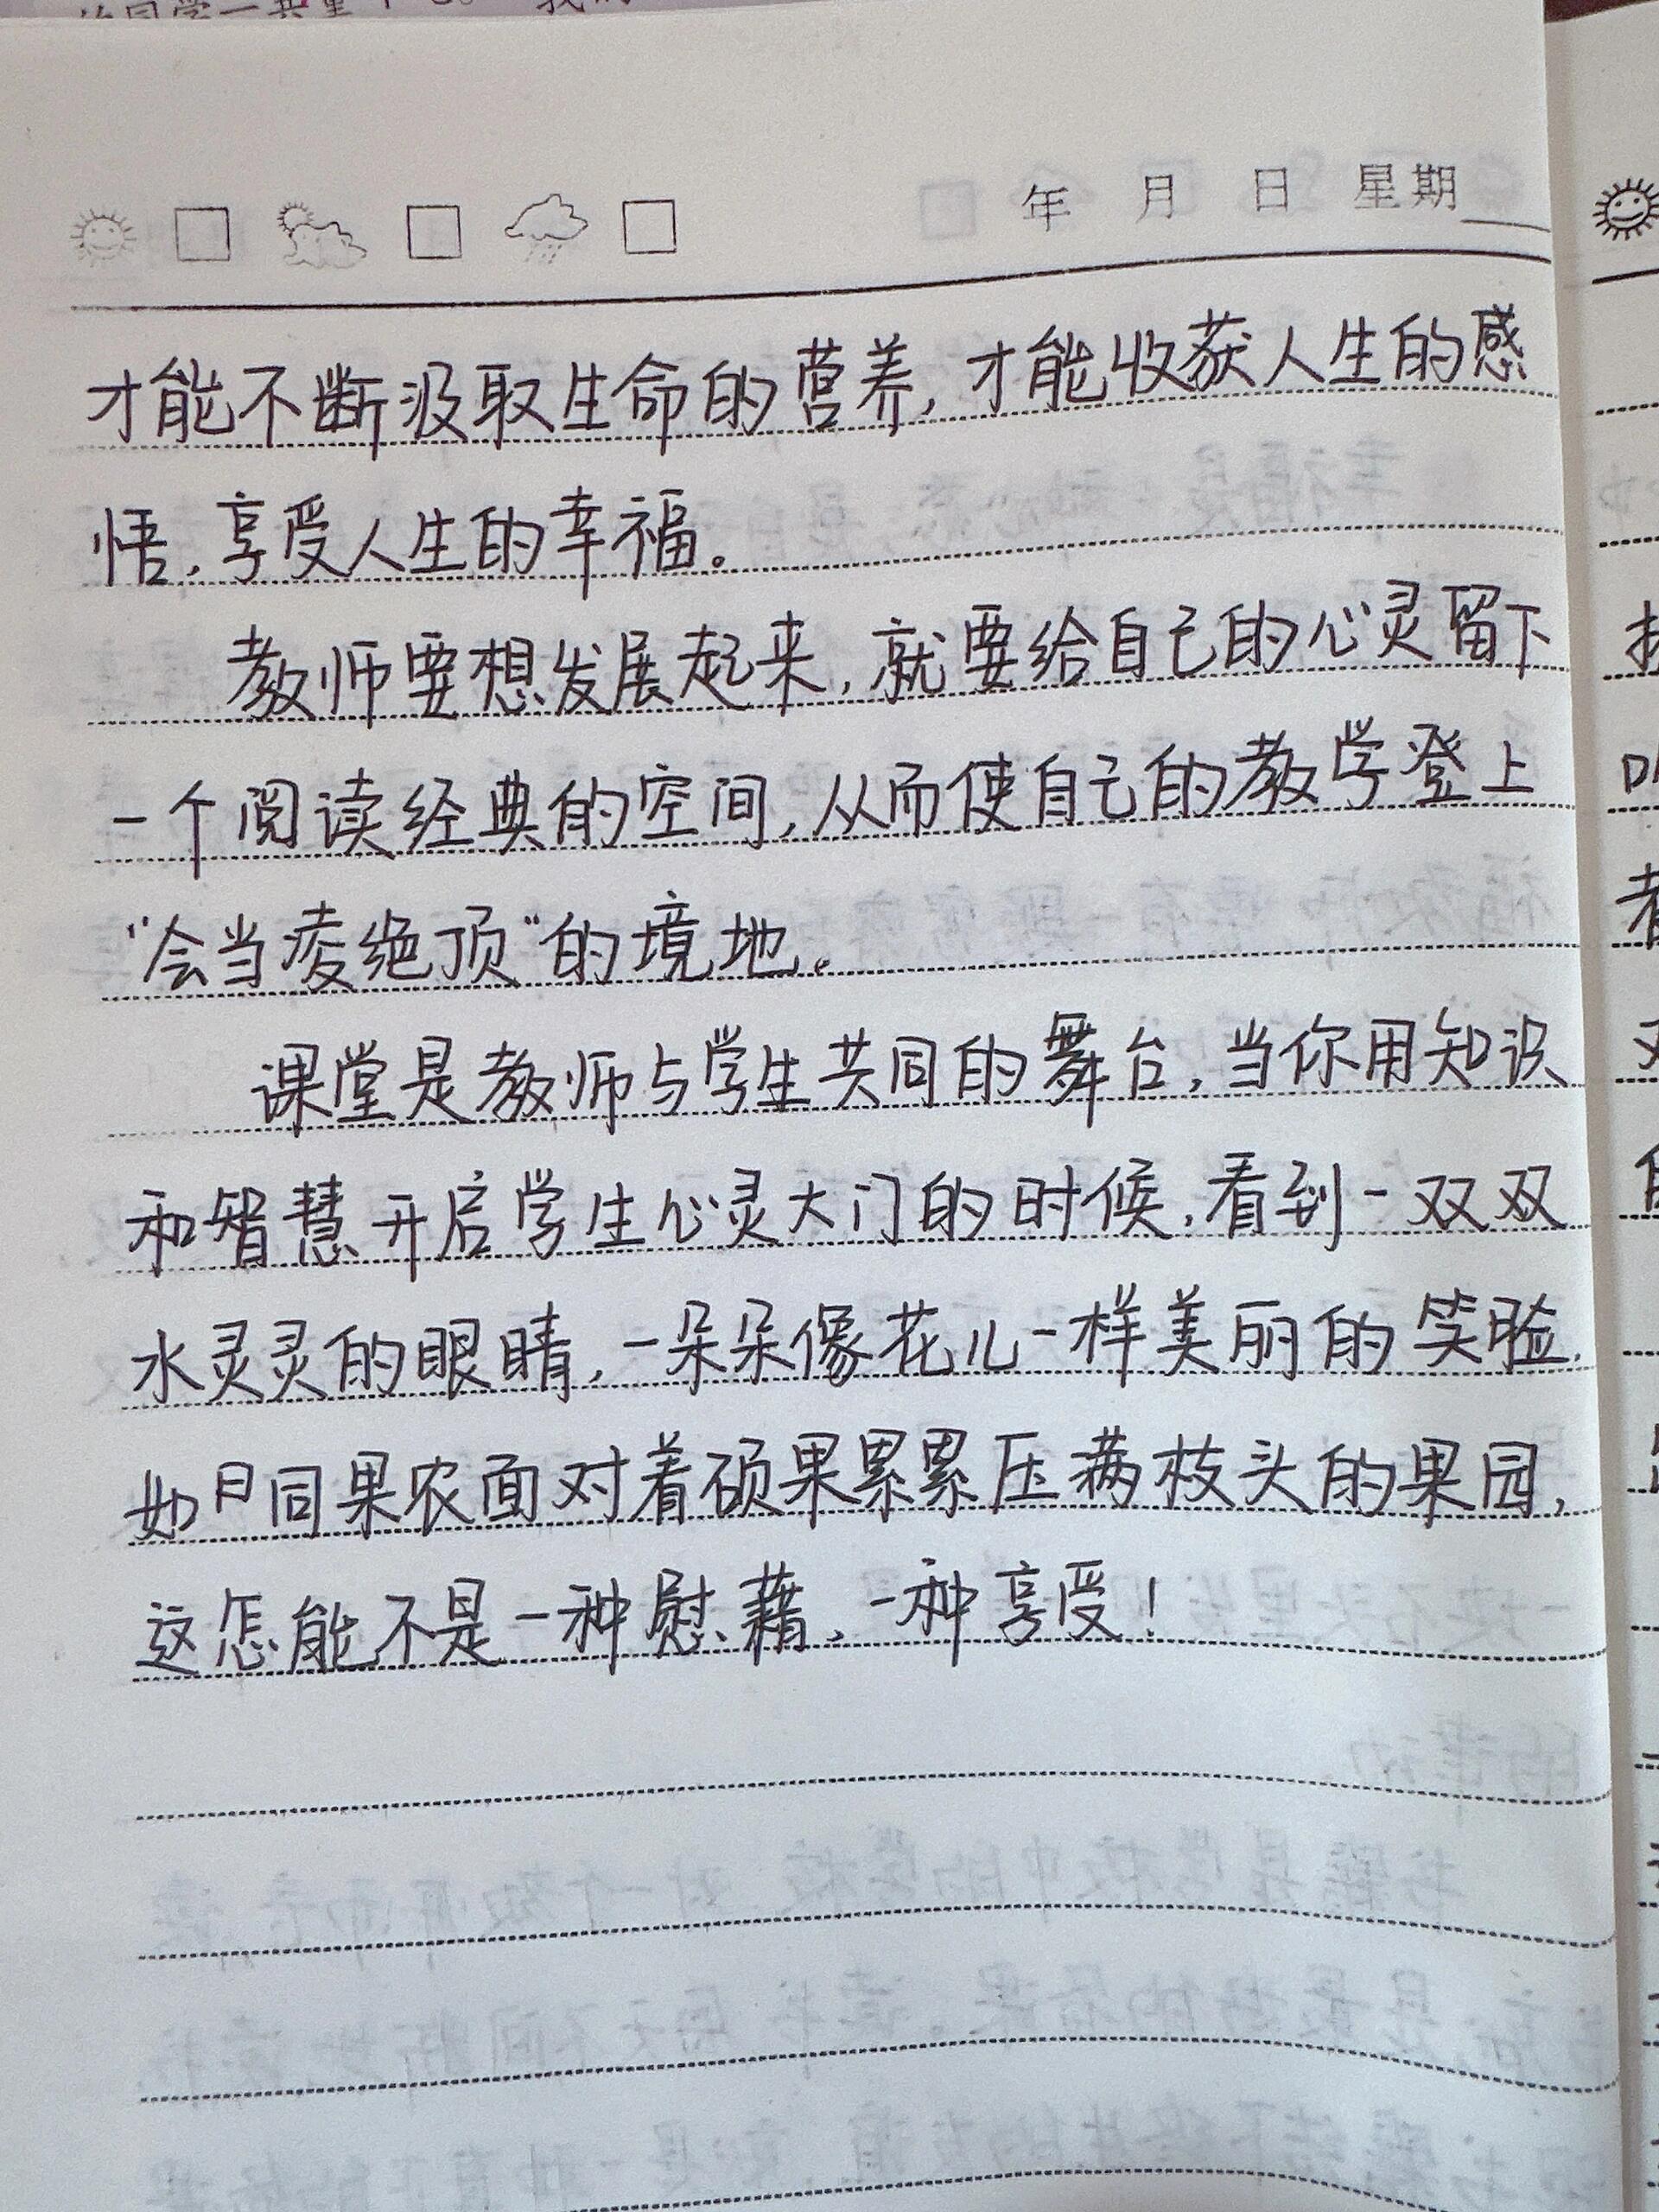 年 月 日 星期
才能不断汲取生命的营养,才能收获人生的感
悟,享受人生的幸福。
教师要想发展起来,就要给自己的心灵留下
一个阅读经典的空间,从而使自己的教学登上
“会当凌绝顶”的境地。
课堂是教师与学生共同的舞台,当你用知识
和智慧开启学生心灵大门的时候,看到一双双
水灵灵的眼睛,一朵朵像花儿一样美丽的笑脸,
如同果农面对着硕果累累压满枝头的果园,
这怎能不是一种慰藉,一种享受!